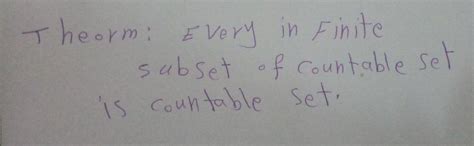 Theorm: Every in Finite
subset of countable set
is countable set.